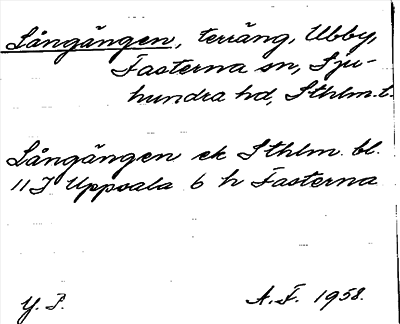 Långängen, terräng, Ubby,
Fasterna sn, Sju-
hundra hd, Sthlm.l.
Långängen ek Sthlm. bl.
11 I Uppsala 6 h Fasterna
Y. P. A. F. 1958.